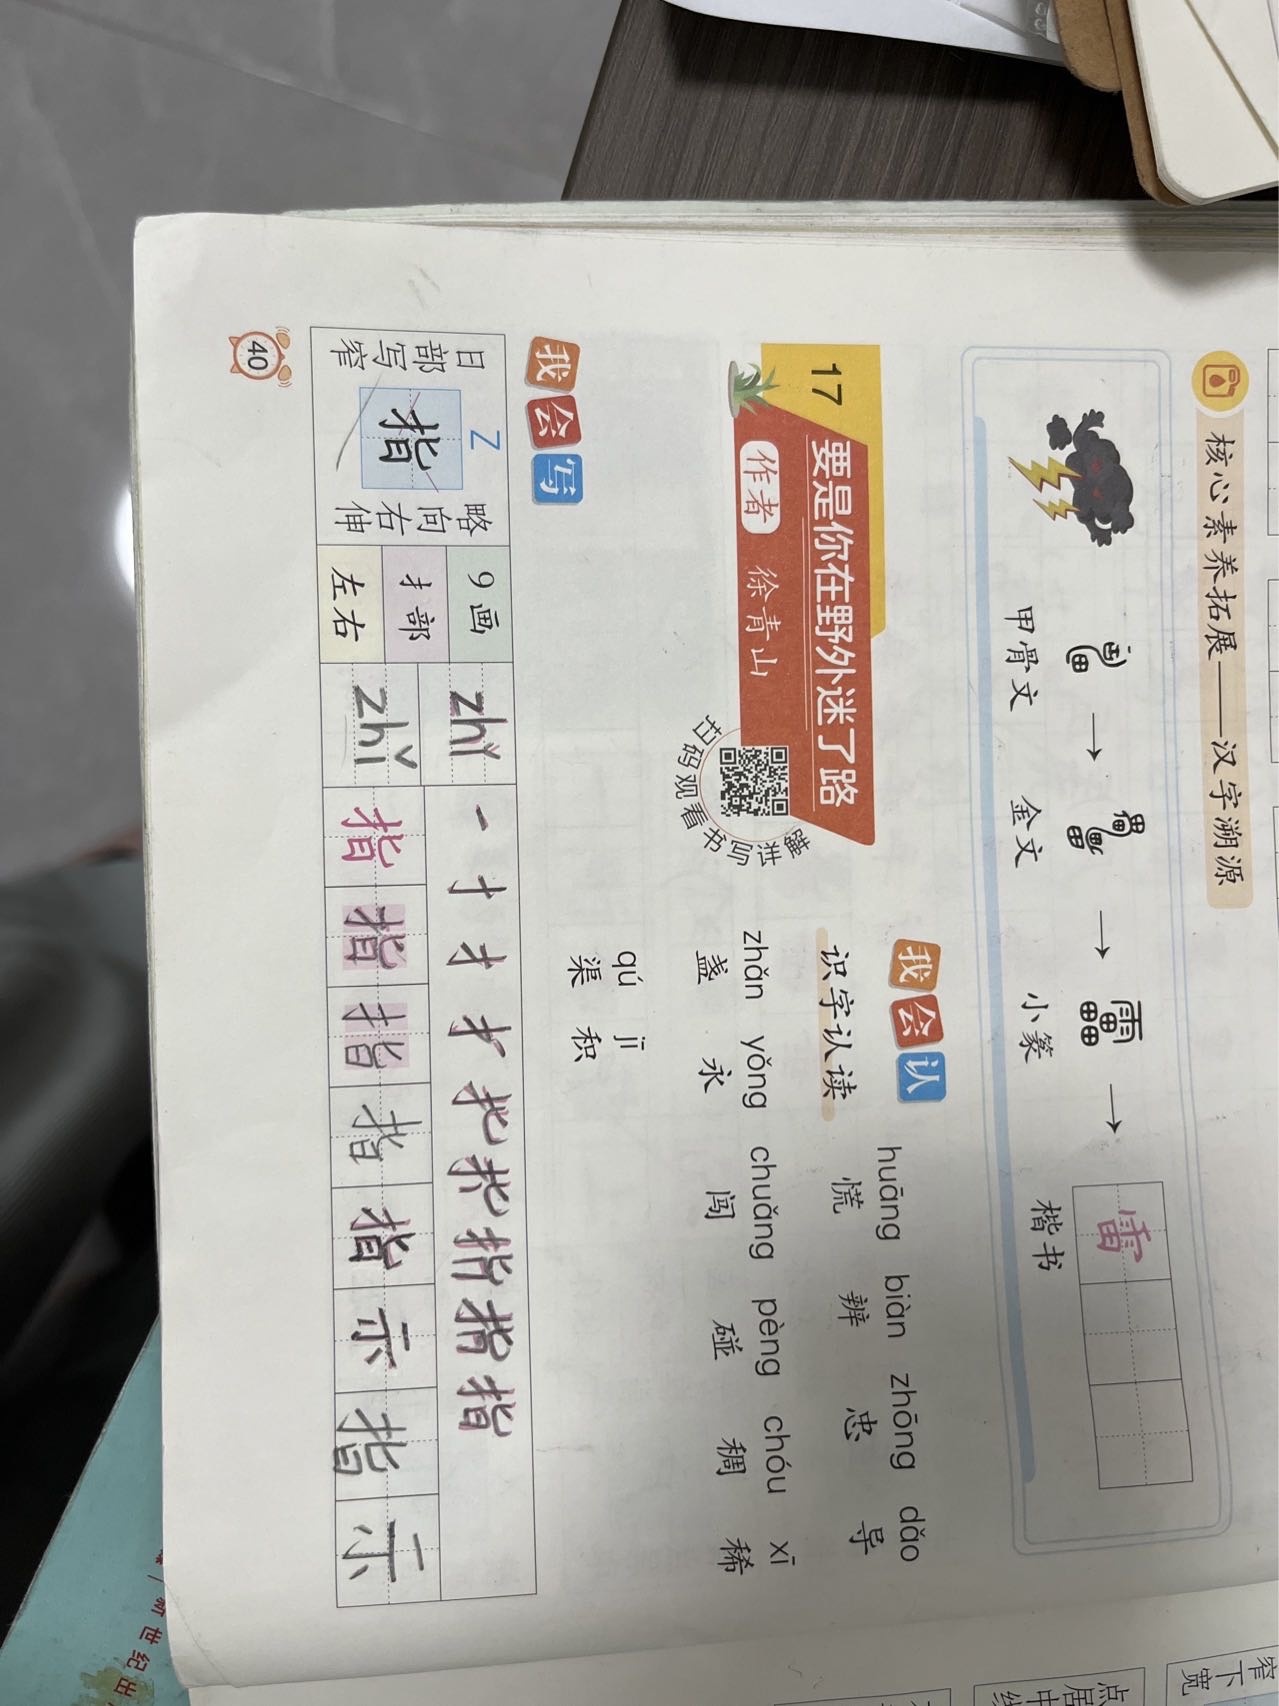 核心素养拓展——汉字溯源
甲骨文 → 金文 → 小篆 → 楷书
雷
17 要是你在野外迷了路
作者 徐青山
扫码观看书写讲解
我会认
识字认读
huāng biàn zhōng dǎo
慌 辨 忠 导
zhǎn yǒng chuǎng pèng chóu xī
盏 永 闯 碰 稠 稀
qú jī
渠 积
我会写
日部写窄
Z
指
略向右伸
9画
扌部
左右
zhǐ
zhǐ
指 指 指 指 指 示 指 示
40
窄下宽
点居中线
新世纪出